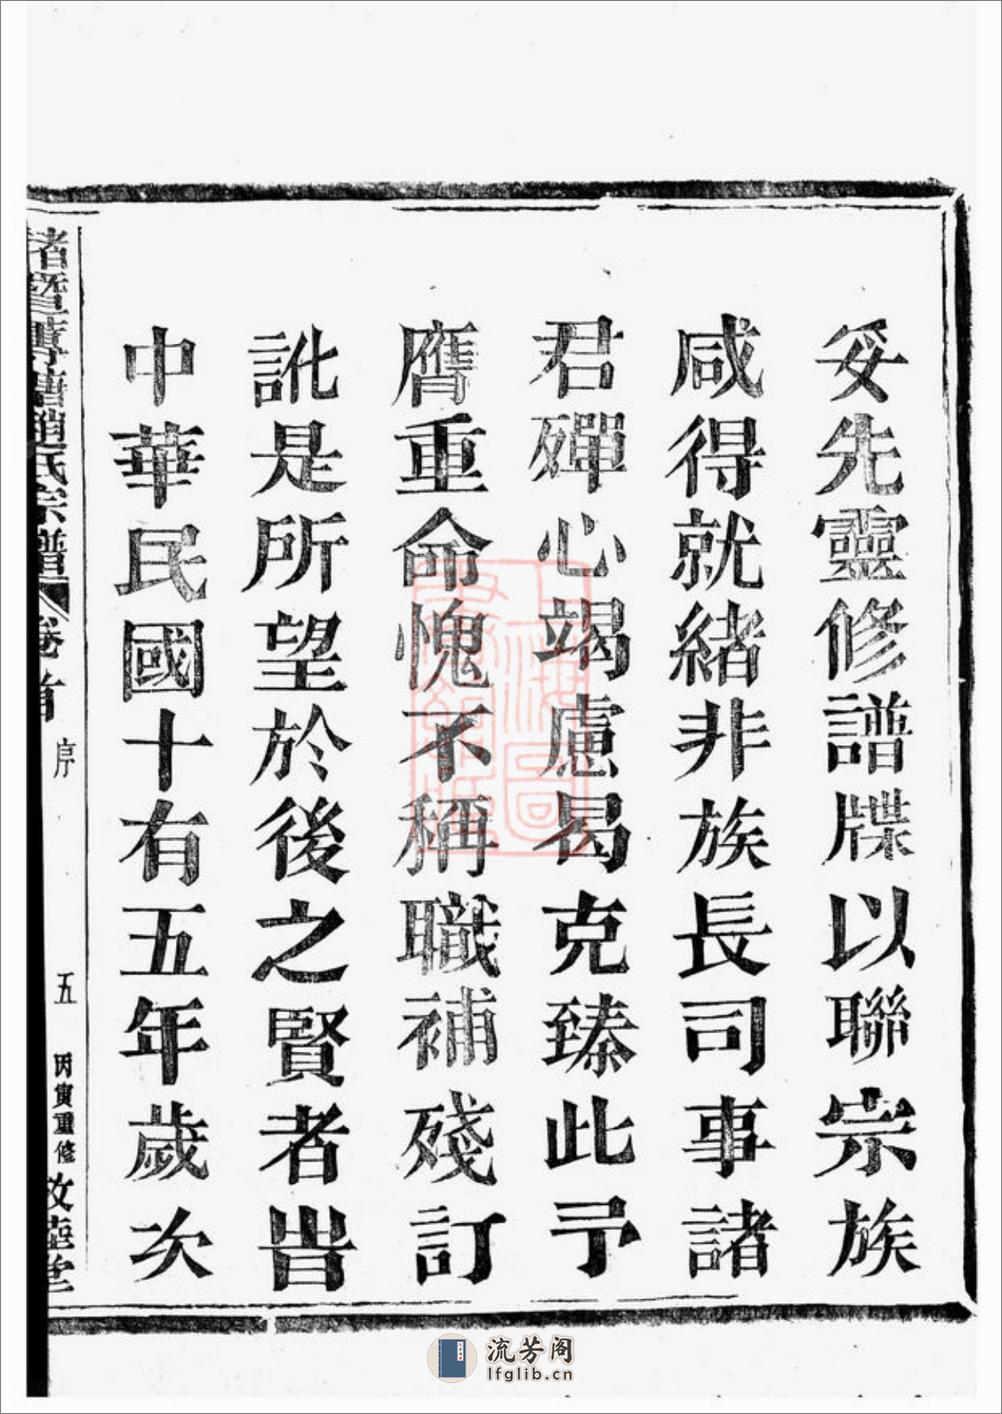 妥先靈修譜牒以聯宗族
咸得就緒非族長司事諸
君殫心竭慮曷克臻此予
膺重命愧不稱職補殘訂
訛是所望於後之賢者旹
中華民國十有五年歲次
諸暨專塘趙氏宗譜 卷首 序 五 丙寅重修 敦睦堂
上海圖書館藏
流芳阁
lfglib.cn